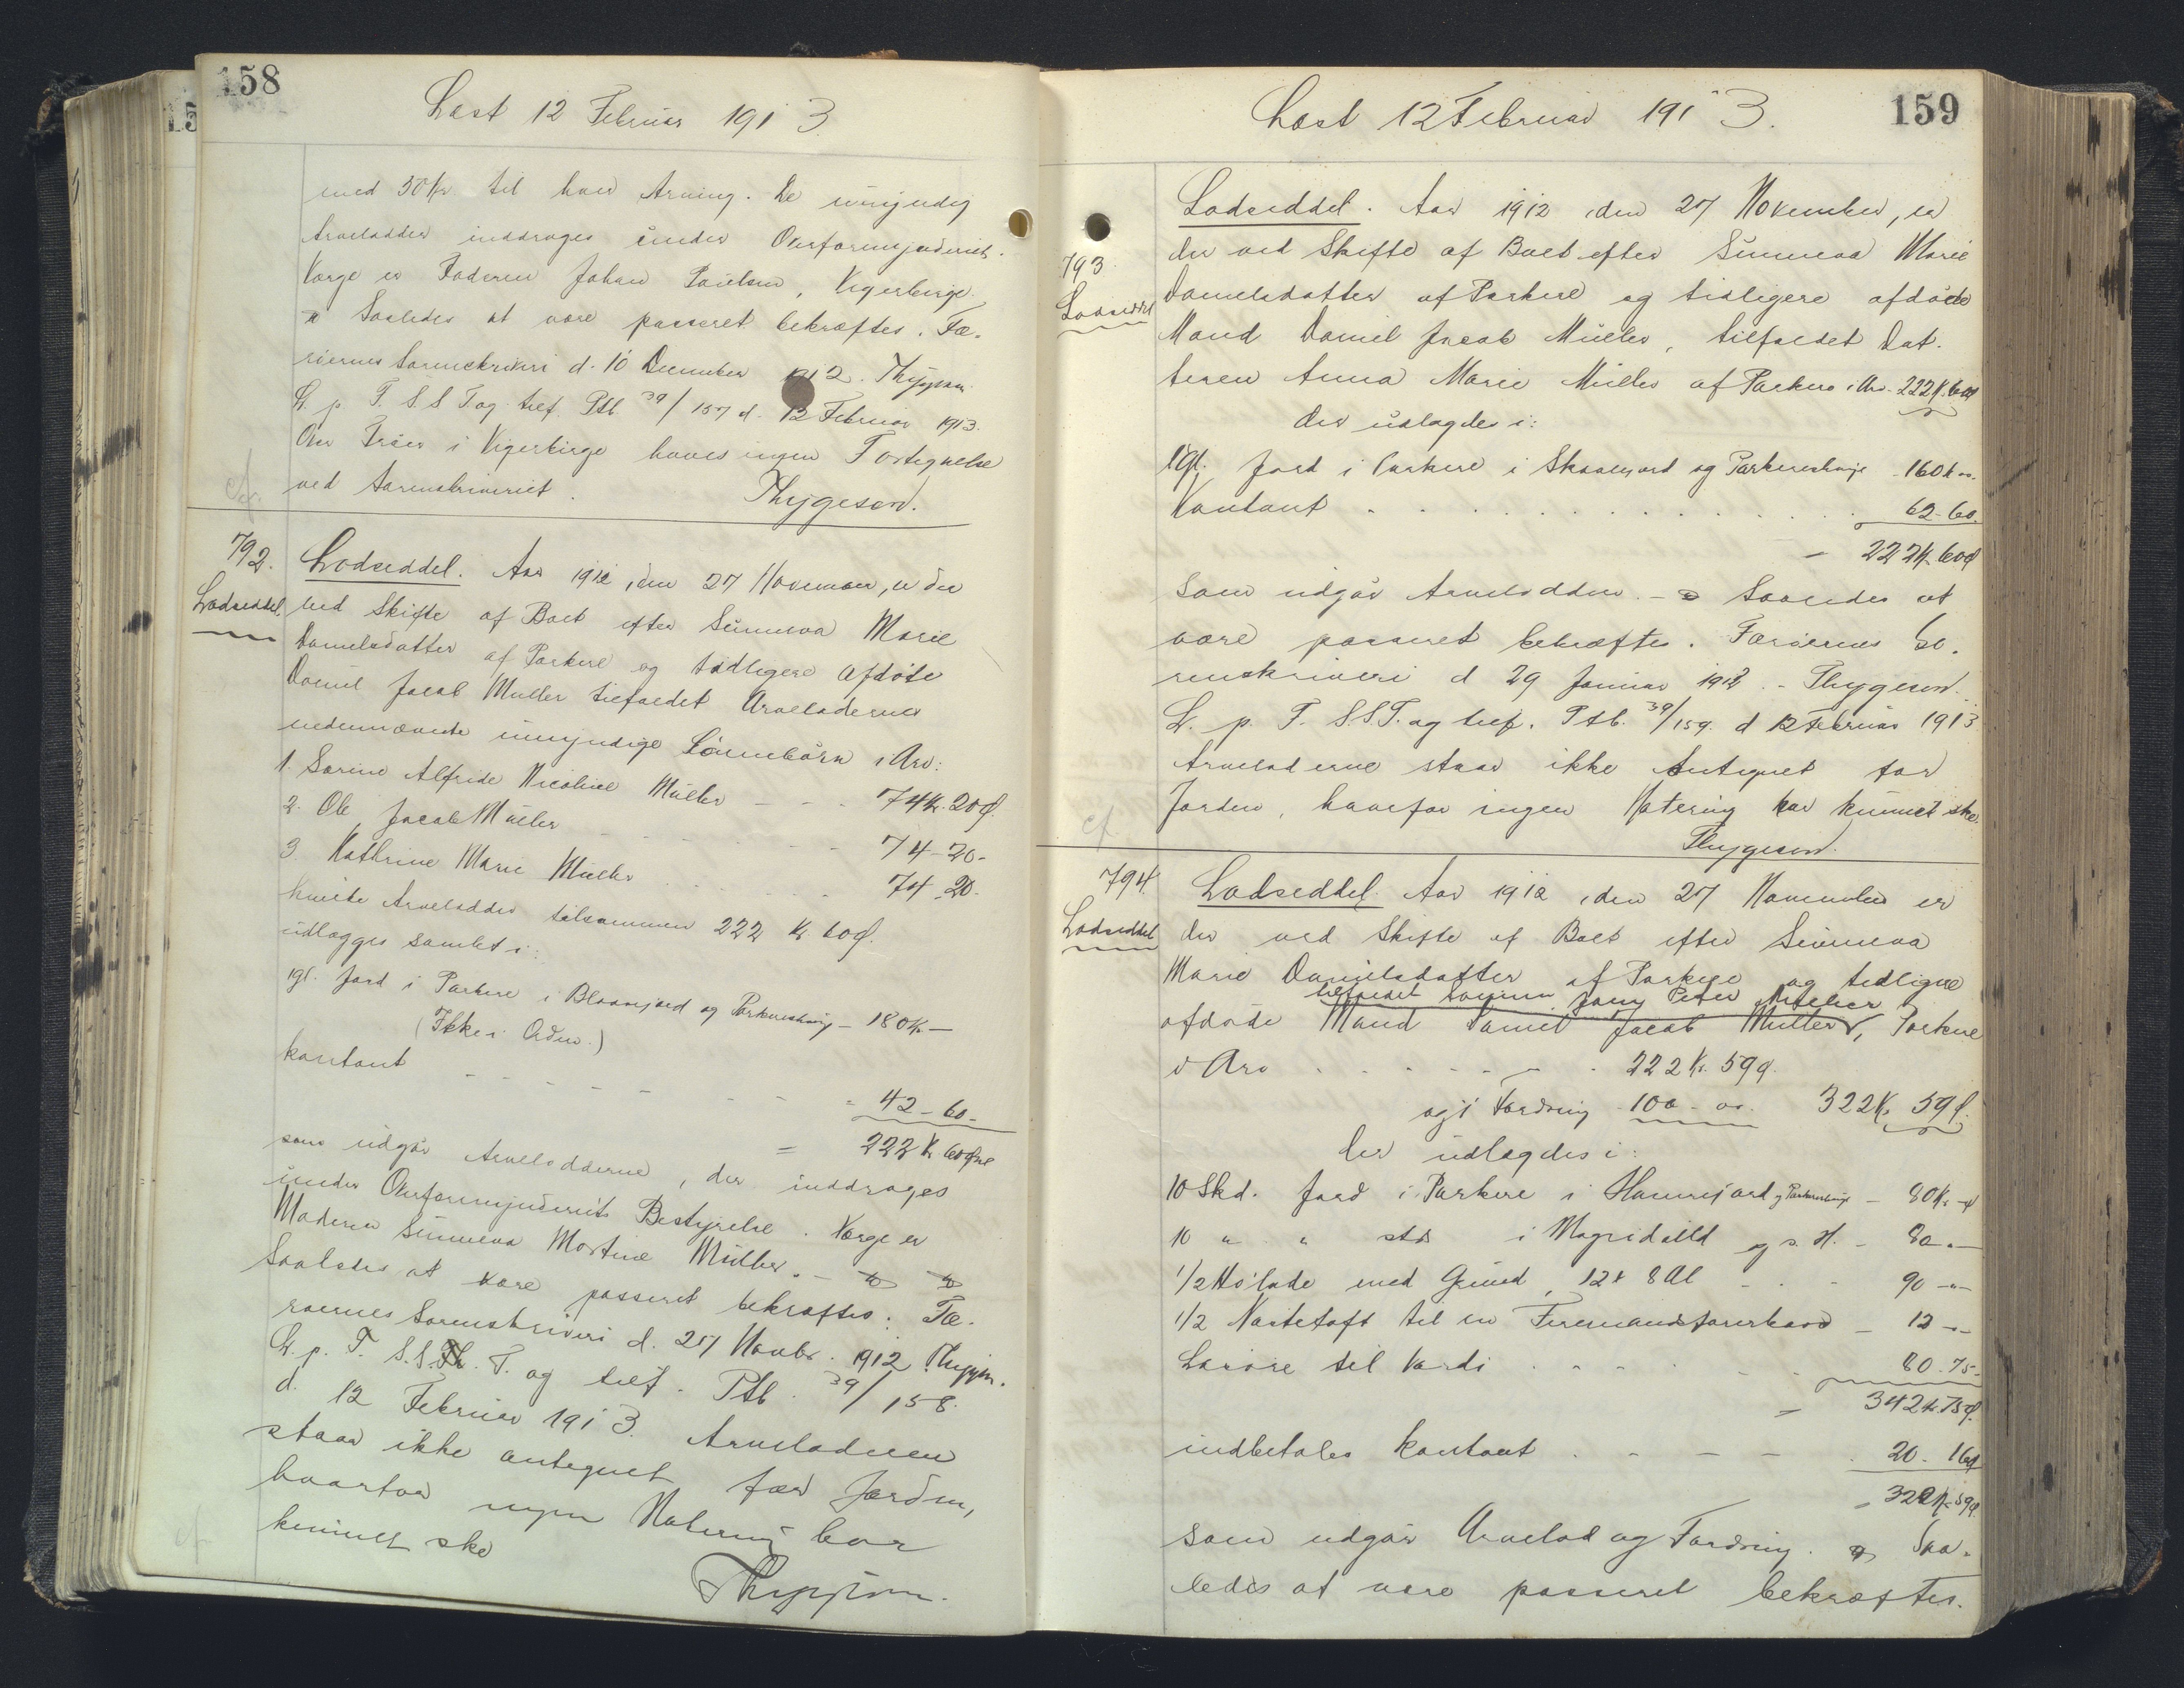 158
Læst 12 Februar 1913
med 50 Kr til hver Arving. De umyndig
Arvelodder inddrages under Overformynderiet.
Værge er Faderen Johan Poulsen, Vigerbirge
Saaledes at være passeret bekræftes. Fæ-
røernes Sorenskriveri d. 10 December 1912. Thygesen.
L. p. F. S. S. T. og tref. Ptb 39/157 d. 12 Februar 1913.
Over Trøer i Vigerbirge haves ingen Fortegnelse
ved Sorenskriveriet. Thygesen.
792.
Lodseddel.
Lodseddel. Aar 1912, den 27 November, er der
ved Skifte af Boet efter Sunneva Marie
Danielsdatter af Porkere og tidligere afdøde
Daniel Jacob Müller tilfaldet Arveladerens
nedennævnte umyndige Sønnebørn i Arv:
1. Sarine Alfride Nicoline Müller - - - 74 Kr. 20 Ø.
2. Ole Jacob Müller - - - 74 - 20 -
3. Kathrine Marie Müller - - - 74 - 20.
hvilke Arvelodder tilsammen 222 Kr. 60 Ø.
udlægges samlet i:
1 gl. Jord i Porkere i Blaavejord og Porkereshavge - 180 Kr -
(Ikke i Orden.)
kontant - - - 42 - 60 -
= 222 Kr 60 Øre
som udgør Arvelodderne, der inddrages
under Overformynderiets Bestyrelse. Værge er
Moderen Sunneva Mortine Müller. -
Saaledes at være passeret bekræftes: Fæ-
røernes Sorenskriveri d. 27 Novbr. 1912 Thygesen.
L. p. F. S. S. T. og tref. Ptb. 39/158.
d. 12 Februar 1913. Arveladeren
staar ikke antegnet for Jorden,
hvorfor ingen Notering har
kunnet ske
Thygesen.
159
Læst 12 Februar 1913.
793.
Lodseddel
Lodseddel. Aar 1912, den 27 November, er
der ved Skifte af Boet efter Sunneva Marie
Danielsdatter af Porkere og tidligere afdøde
Mand Daniel Jacob Müller, tilfaldet Dat-
teren Anna Marie Müller af Porkere i Arv - 222 K. 60 Ø
der udlagdes i:
1 gl. Jord i Porkere i Skaalejord og Porkereshavge - 160 Kr -
Kontant . . . 62 - 60.
- 222 Kr. 60 Ø
som udgør Arvelodden. - Saaledes at
være passeret bekræftes. Færøernes So-
renskriveri d 29 Januar 1912. - Thygesen.
L. p. F. S. S. T. og tref. Ptb. 39/159. d 12 Februar 1913
Arveladerne staar ikke antegnet for
Jorden, hvorfor ingen Notering har kunnet ske.
Thygesen.
794.
Lodseddel
Lodseddel. Aar 1912, den 27 November er
der ved Skifte af Boet efter Sunneva
Marie Danielsdatter af Porkere og tidligere
tilfaldet Sønnen Jany Peter Müller
afdøde Mand Daniel Jacob Müller, Porkere
i Arv . . . 222 Kr. 59 Ø.
og i Fordring 100 - 00. 322 Kr. 59 Ø.
der udlagdes i:
10 Skd. Jord i Porkere i Hannesjord og Porkereshavge - 80 Kr - Ø
10 " " sts i Magridalld og s. H. - 80 -
1/2 Hølade med Grund, 12 x 8 Al - - - 90 - -
1/2 Nøstetoft til en Firemandsfarerbaad - 12 - -
Løsøre til Værdi . . . 80. 75 -
= 342 Kr. 75 Ø.
indbetales kontant . . . 20. 16 Ø
= 322 Kr. 59 Ø.
som udgør Arvelod og Fordring. Saa-
ledes at være passeret bekræftes.